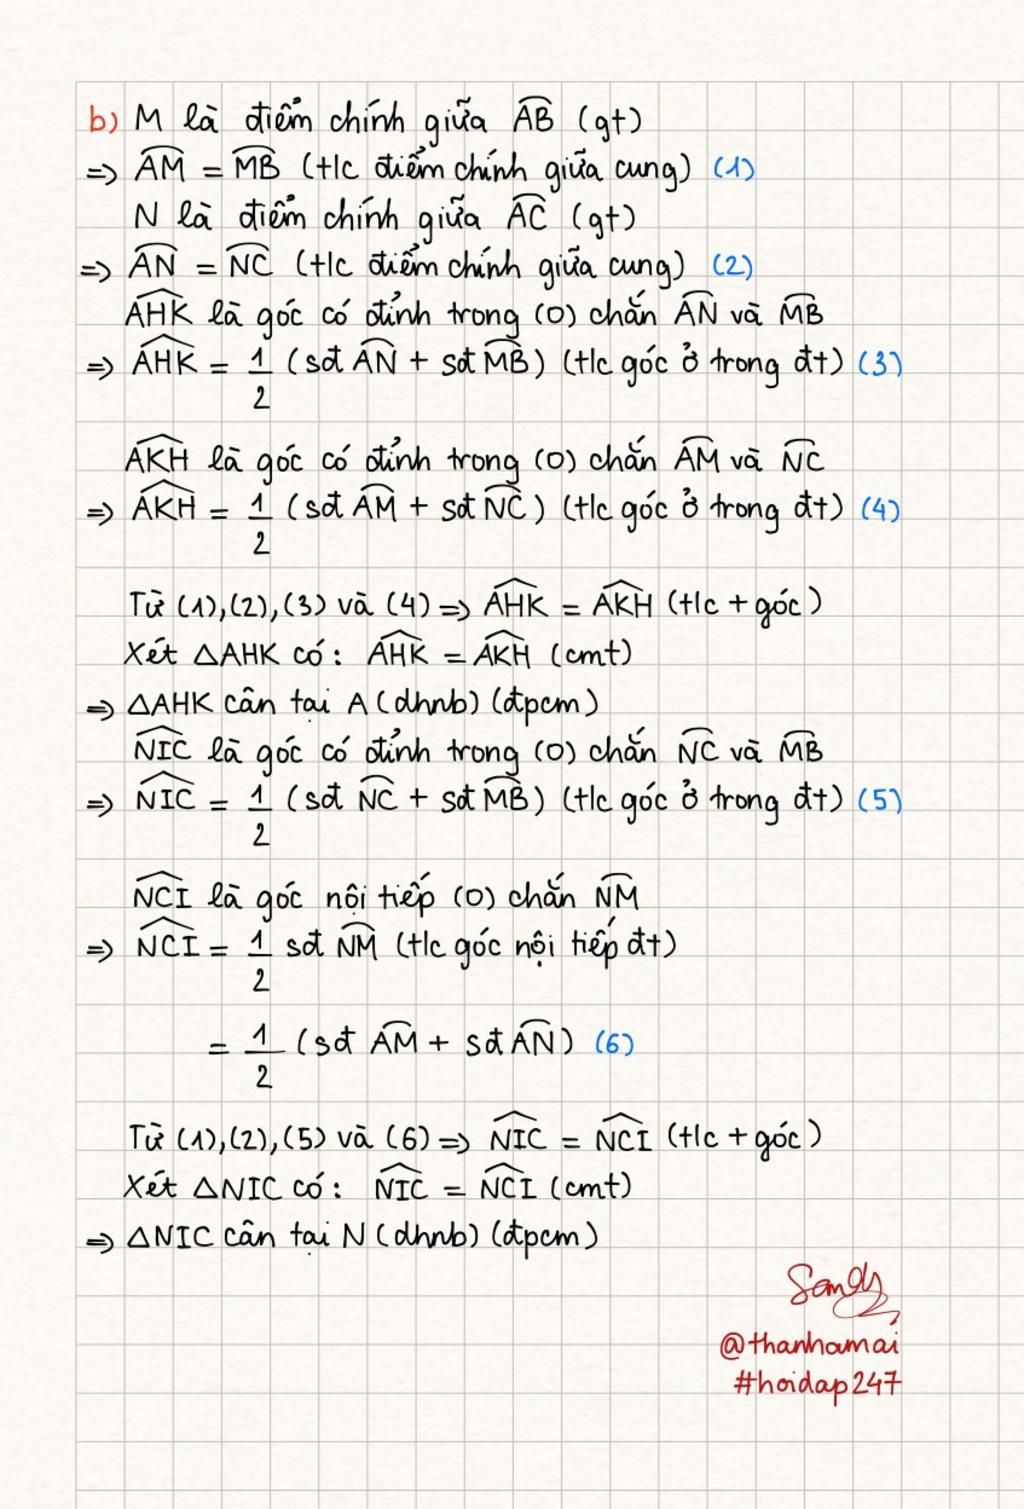 b) M là điểm chính giữa A͡B (gt)
=> A͡M = M͡B (t/c điểm chính giữa cung) (1)
N là điểm chính giữa A͡C (gt)
=> A͡N = N͡C (t/c điểm chính giữa cung) (2)
\widehat{AHK} là góc có đỉnh trong (O) chắn A͡N và M͡B
=> \widehat{AHK} = 1/2 (sđ A͡N + sđ M͡B) (t/c góc ở trong đt) (3)
\widehat{AKH} là góc có đỉnh trong (O) chắn A͡M và N͡C
=> \widehat{AKH} = 1/2 (sđ A͡M + sđ N͡C) (t/c góc ở trong đt) (4)
Từ (1),(2),(3) và (4) => \widehat{AHK} = \widehat{AKH} (t/c + góc)
Xét △AHK có: \widehat{AHK} = \widehat{AKH} (cmt)
=> △AHK cân tại A (dhnb) (đpcm)
\widehat{NIC} là góc có đỉnh trong (O) chắn N͡C và M͡B
=> \widehat{NIC} = 1/2 (sđ N͡C + sđ M͡B) (t/c góc ở trong đt) (5)
\widehat{NCI} là góc nội tiếp (O) chắn N͡M
=> \widehat{NCI} = 1/2 sđ N͡M (t/c góc nội tiếp đt)
= 1/2 (sđ A͡M + sđ A͡N) (6)
Từ (1),(2),(5) và (6) => \widehat{NIC} = \widehat{NCI} (t/c + góc)
Xét △NIC có: \widehat{NIC} = \widehat{NCI} (cmt)
=> △NIC cân tại N (dhnb) (đpcm)
Sandy
@thanhamai
#hoidap247